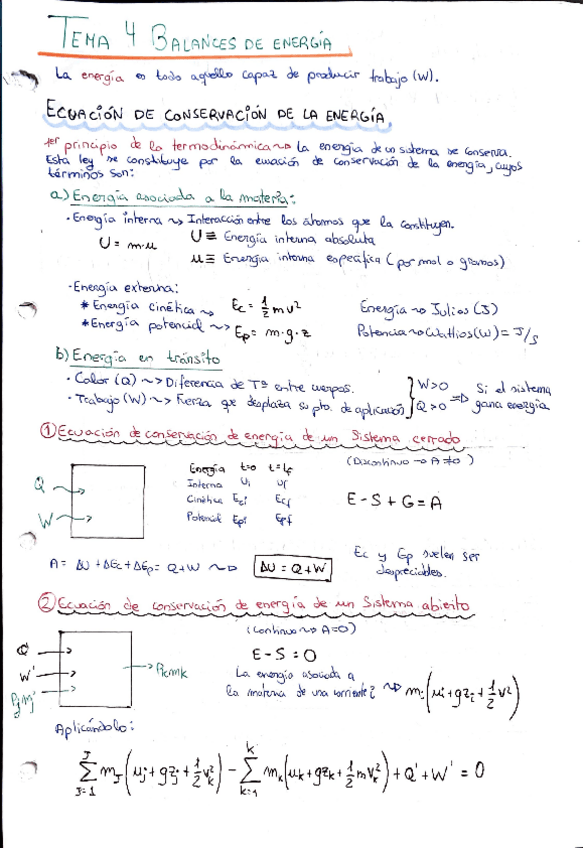 TEMA 4 BALANCES DE ENERGÍA
La energía es todo aquello capaz de producir trabajo (W).
ECUACIÓN DE CONSERVACIÓN DE LA ENERGÍA.
1er principio de la termodinámica ~> La energía de un sistema se conserva.
Esta ley se constituye por la ecuación de conservación de la energía, cuyos
términos son:
a) Energía asociada a la materia:
· Energía interna ~> Interacción entre los átomos que la constituyen.
U = m·u
U ≡ Energía interna absoluta
u ≡ Energía interna específica (por mol o gramos)
· Energía externa:
* Energía cinética ~> Ec = 1/2 m v²
Energía ~> Julios (J)
* Energía potencial ~> Ep = m·g·z
Potencia ~> Wattios (W) = J/s
b) Energía en tránsito
· Calor (Q) ~> Diferencia de Tª entre cuerpos.
· Trabajo (W) ~> Fuerza que desplaza su pto. de aplicación
} W>0 Q>0 => Si el sistema gana energía
① Ecuación de conservación de energía de un Sistema cerrado
(Discontinuo → A≠0)
Q
W
Energía t=0 t=tf
Interna Ui Uf
Cinética Eci Ecf
Potencial Epi Epf
E - S + G = A
A = ΔU + ΔEc + ΔEp = Q + W ~> ΔU = Q + W
Ec y Ep suelen ser
despreciables.
② Ecuación de conservación de energía de un Sistema abierto
(Continuo ~> A=0)
Q'
W'
E - S = 0
La energía asociada a
la materia de una corriente i ~> mi (ui + gzi + 1/2 v²)
Aplicándolo:
∑ J=1 J mJ (uj + gzj + 1/2 vk²) - ∑ k=1 k mk (uk + gzk + 1/2 m vk²) + Q' + W' = 0